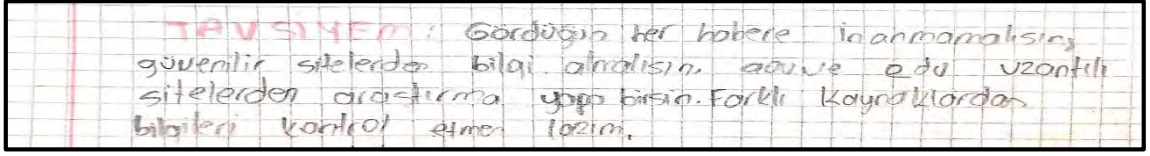 TAVSİYEM: Gördüğün her habere inanmamalısın,
güvenilir sitelerden bilgi almalısın. gov ve edu uzantılı
sitelerden araştırma yapabilirsin. Farklı Kaynaklardan
bilgileri kontrol etmen lazım.